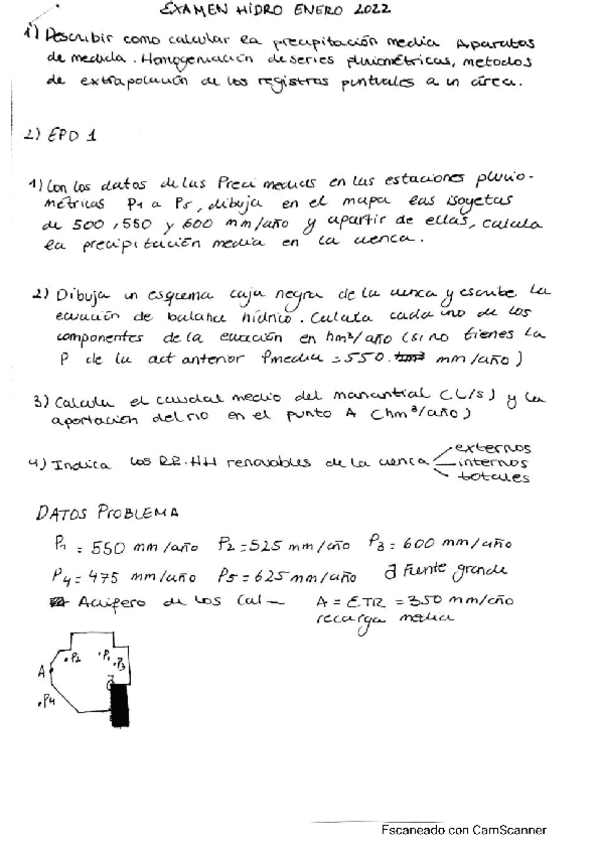 EXAMEN HIDRO ENERO 2022
1) Describir como calcular la precipitación media Aparatos
de medida. Homogeneización de series pluviométricas, metodos
de extrapolación de los registros puntuales a un área.
2) EPD 1
1) Con los datos de las Preci medias en las estaciones pluvio-
métricas P1 a P5, dibuja en el mapa las isoyetas
de 500, 550 y 600 mm/año y apartir de ellas, calcula
la precipitación media en la cuenca.
2) Dibuja un esquema caja negra de la cuenca y escribe la
ecuación de balance hídrico. Calcula cada uno de los
componentes de la ecuación en hm³/año (si no tienes la
P de la act anterior Pmedia = 550 mm/año)
3) Calcula el caudal medio del manantial (L/s) y la
aportación del rio en el punto A (hm³/año)
4) Indica los RR.HH renovables de la cuenca externos
internos
totales
DATOS PROBLEMA
P1 = 550 mm/año P2 = 525 mm/año P3 = 600 mm/año
P4 = 475 mm/año P5 = 625 mm/año Fuente grande
Acuifero de los Cal- A = ETR = 350 mm/año
recarga media
A P2 P1 P3
P4
Escaneado con CamScanner